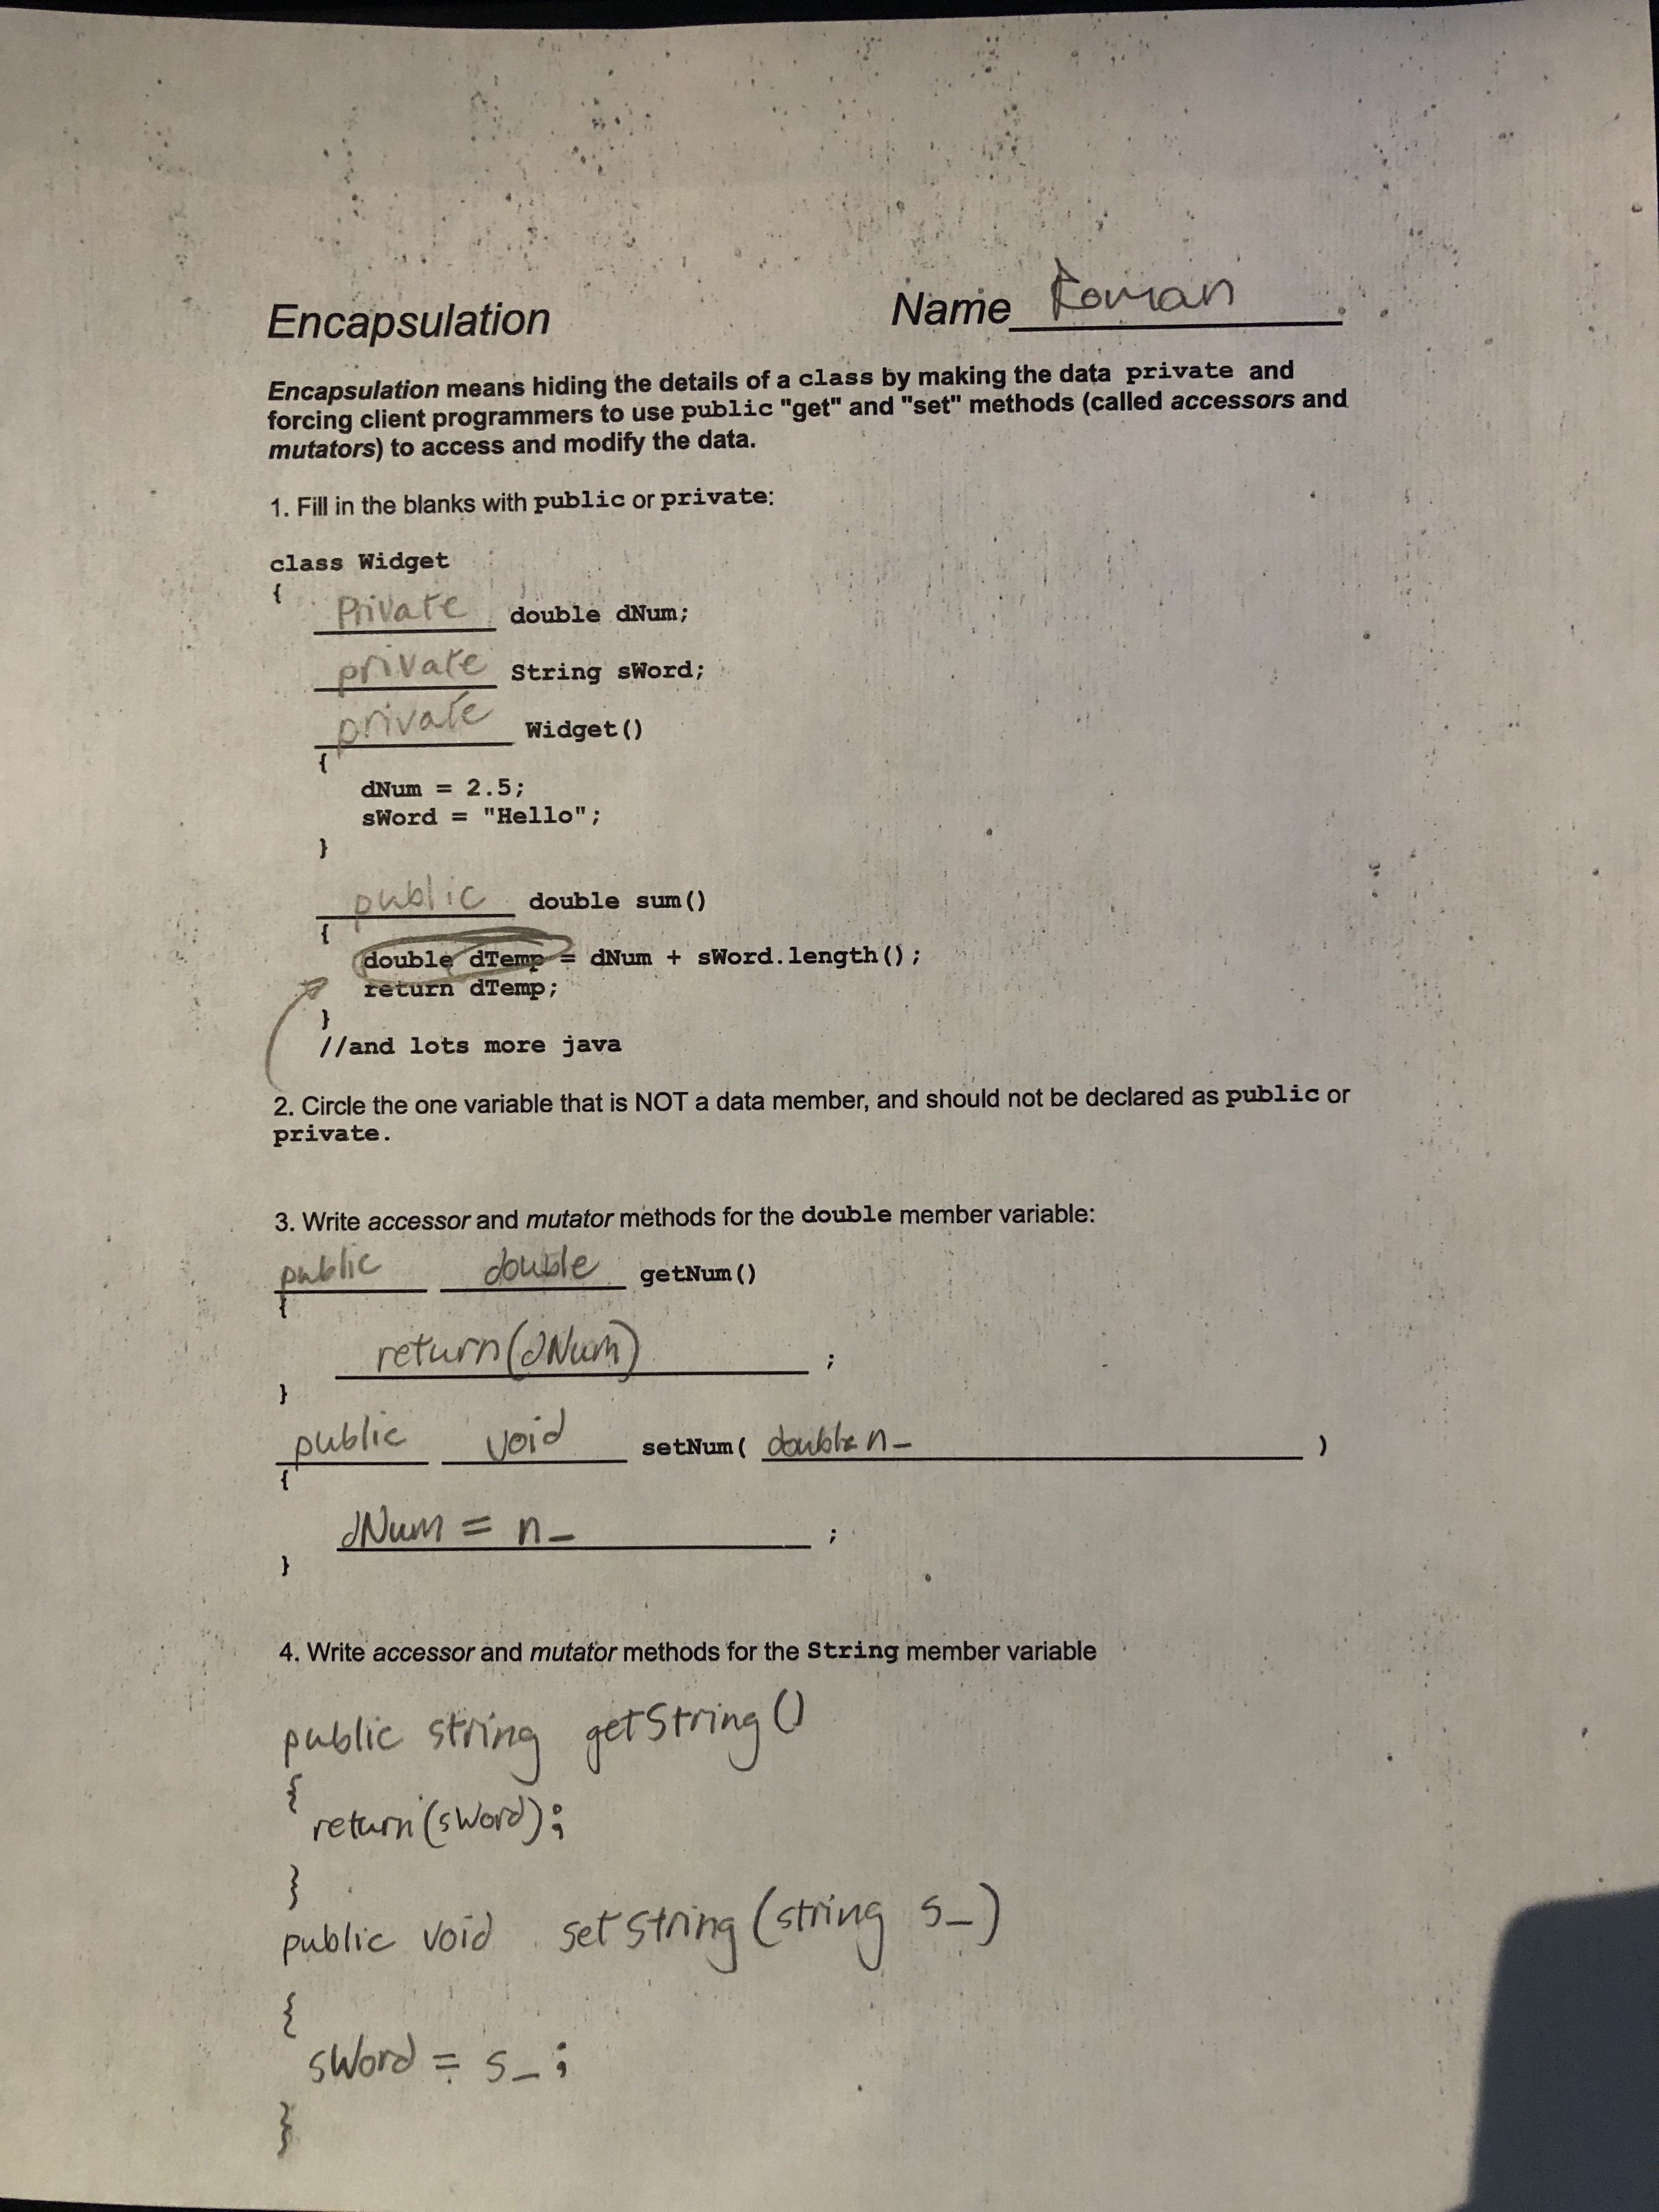 Encapsulation Name Roman
Encapsulation means hiding the details of a class by making the data private and
forcing client programmers to use public "get" and "set" methods (called accessors and
mutators) to access and modify the data.
1. Fill in the blanks with public or private:
class Widget
{
Private double dNum;
private String sWord;
private Widget()
{
dNum = 2.5;
sWord = "Hello";
}
public double sum()
{
double dTemp = dNum + sWord.length();
return dTemp;
}
//and lots more java
2. Circle the one variable that is NOT a data member, and should not be declared as public or
private.
3. Write accessor and mutator methods for the double member variable:
public double getNum()
{
return(dNum) ;
}
public void setNum( double n_ )
{
dNum = n_ ;
}
4. Write accessor and mutator methods for the String member variable
public string getString()
{
return(sWord);
}
public void setString(string s_)
{
sWord = s_;
}